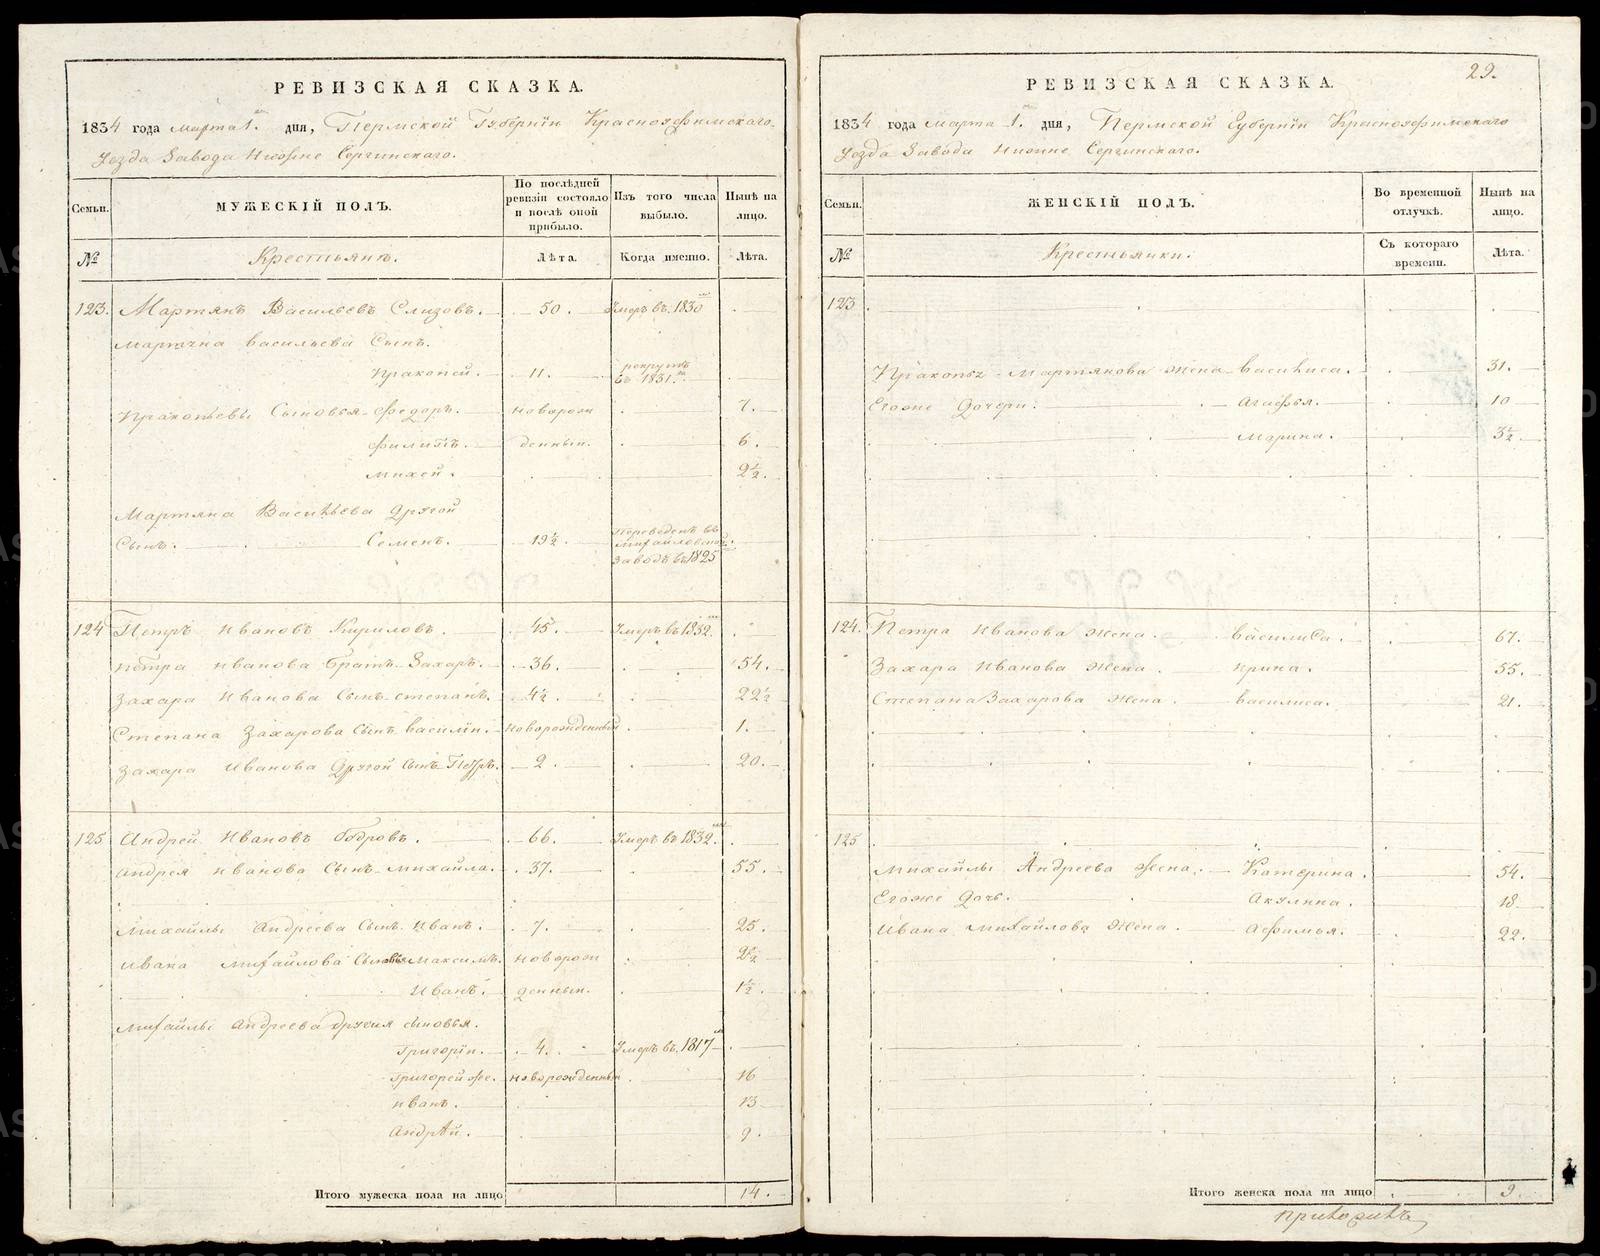 РЕВИЗСКАЯ СКАЗКА.
1834 года марта 1. дня, Пермской Губернїи Красноуфимскаго
Уезда Завода Нижне Сергинскаго.
Семьи.
МУЖЕСКIЙ ПОЛЪ.
По послѣдней ревизіи состояло и послѣ оной прибыло.
Изъ того числа выбыло.
Нынѣ на лицо.
№ Крестьянъ. Лѣта. Когда именно. Лѣта.
123. Мартянъ Васильевъ Слизовъ. 50. Умеръ въ 1830
Мартяна васильева Сынъ.
Пракопей. 11. рекрутъ въ 1831.
Пракопьевы Сыновья Федоръ. новорож 7.
Филипъ. денныи. 6.
Михей. 2½.
Мартяна Васильева другой
Сынъ. Семенъ. 19½. Переведенъ въ Михайловской Заводъ въ 1825
124 Петръ Ивановъ Кириловъ. 45. Умеръ въ 1832.
Петра Иванова Братъ Захаръ. 36. 54.
Захара Иванова Сынъ степанъ. 4½. 22½
Степана Захарова Сынъ василiи. новорожденный 1.
Захара Иванова Другой Сынъ Петръ. 2. 20.
125 Андрей Ивановъ Бобровъ. 66. Умеръ въ 1832.
Андрея Иванова Сынъ михайла. 37. 55.
Михайлы Андреева Сынъ Иванъ. 7. 25.
Ивана Михайлова Сыновья Максимъ. новорож 2½
Иванъ. денныи. 1½.
Михайлы Андреева другия сыновья.
Григорiи. 4. Умеръ въ 1817
Григорей же. новорожденныи 16
Иванъ. 13
Андрѣй. 9.
Итого мужеска пола на лицо 14.
29.
РЕВИЗСКАЯ СКАЗКА.
1834 года марта 1. дня, Пермской Губернїи Красноуфимскаго
Уезда Завода Нижне Сергинскаго.
Семьи.
ЖЕНСКІЙ ПОЛЪ.
Во временной отлучкѣ.
Нынѣ на лицо.
№ Крестьянки. Съ котораго времени. Лѣта.
123
Пракопья Мартянова жена василиса. 31.
Егоже Дочери: Агафья. 10
Марина. 3½
124. Петра Иванова жена. василиса. 67.
Захара Иванова жена. ирина. 55.
Степана Захарова жена. василиса. 21.
125
Михайлы Андреева жена. Катерина. 54.
Егоже дочь. Акулина. 18
Ивана Михайлова жена. Афимья. 22.
Итого женска пола на лицо 9.